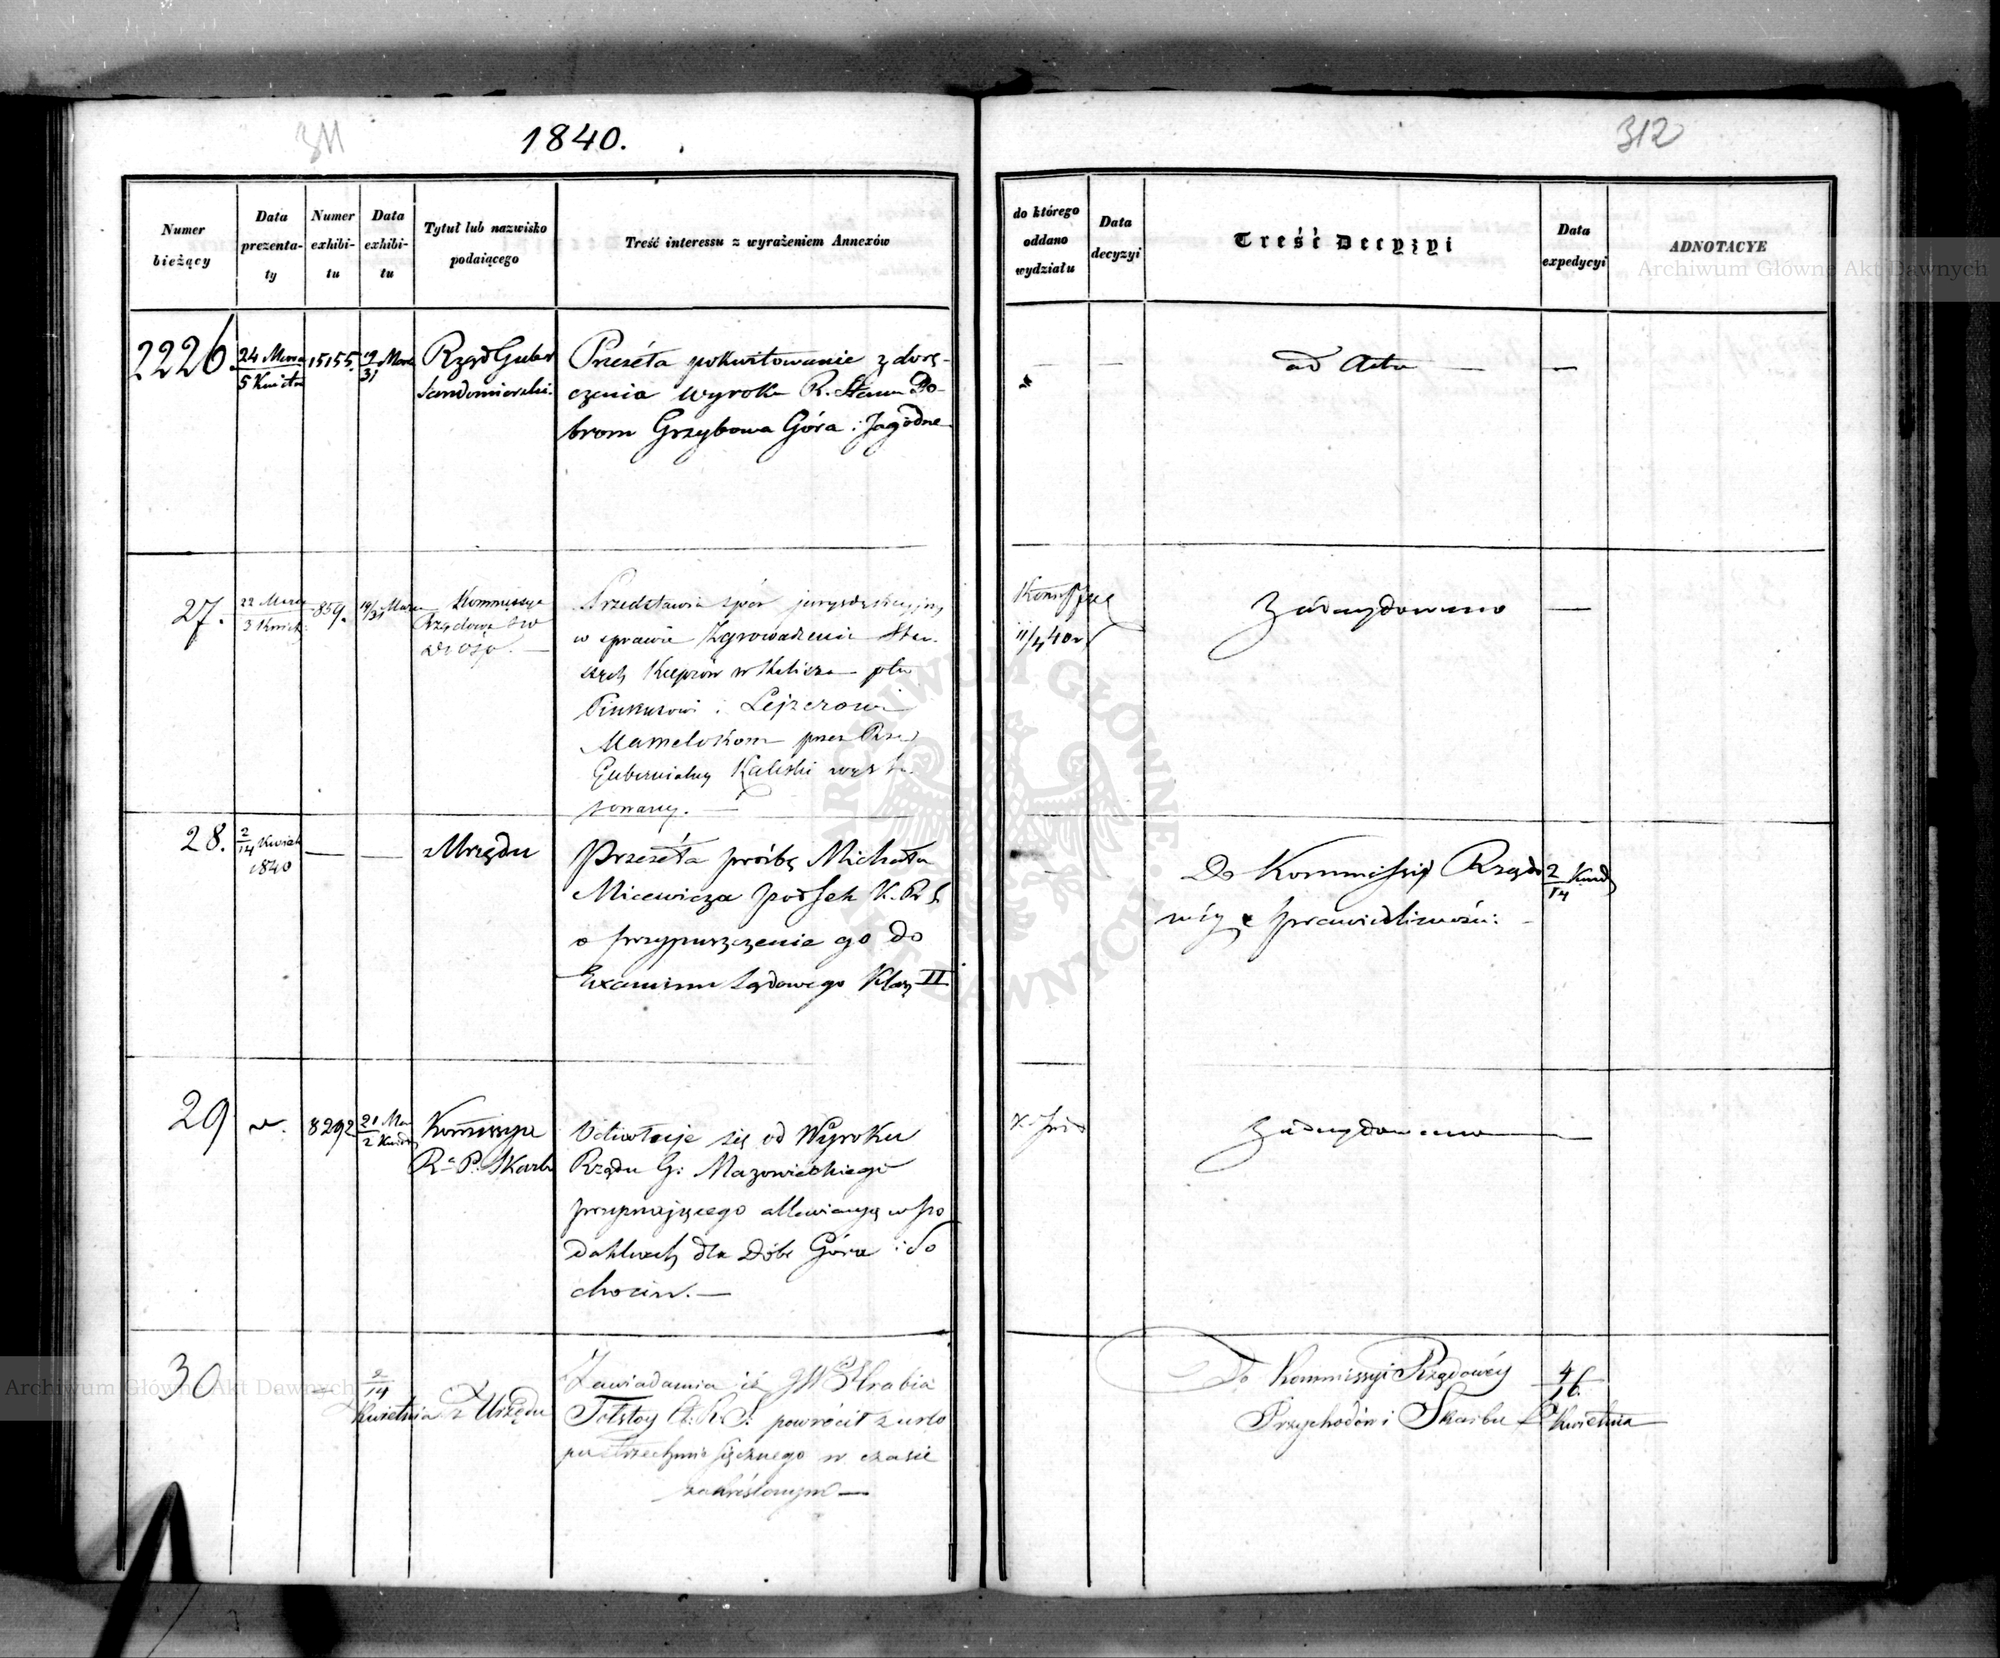 311
1840.
312
Numer bieżący
Data prezentaty
Numer exhibitu
Data exhibitu
Tytuł lub nazwisko podaiącego
Treść interessu z wyrażeniem Annexów
do którego oddano wydziału
Data decyzyi
Treść Decyzyi
Data expedycyi
ADNOTACYE
Archiwum Główne Akt Dawnych
2226.
24 Marca
5 Kwietn
15155.
19 Marca
31
Rząd Guber
Sandomierski.
Przeséła pokwitowanie z dorę-
czenia wyroku R. Stanu Do-
brom Grzybowa Góra i Jagodne
—
—
ad Acta —
—
27.
22 Marca
3 Kwiet.
859.
19/31 Marca
Kommissya
Rządowa
Przedstawia spór jurysdykcyjny
w sprawie Zgromadzenia Star-
szych Kupców w Kaliszu
Pinkusowi i Lejzerowi
Mamelokom przez Rząd
Gubernialny Kaliski
11/4 40
Zadecydowano —
28.
2
14 Kwiet
1840
—
—
z Urzędu
Przeséła próźbę Michała
Micewicza
o przypuszczenie go do
Examinu Sądowego Klasy II
Do Kommissyi Rządo
wéy Sprawiedliwości. —
2 Kwiet
14
29
8292
21 Mar
2 Kwiet
Kommissya
R. P. Skarbu
Odwołuje się od Wyroku
Rządu G: Mazowieckiego
przyznającego allewiacyą w po
datkach dla Dóbr Góra i So
chocin. —
Zadecydowano —
30
—
2
14
Kwietnia
z Urzędu
Zawiadamia iż JW Hrabia
Tołstoy powrócił z urlo
pu w czasie
zakreślonym —
Do Kommissyi Rządowéy
Przychodów i Skarbu
4
16
Kwietnia
Archiwum Główne Akt Dawnych
ARCHIWUM GŁÓWNE AKT DAWNYCH